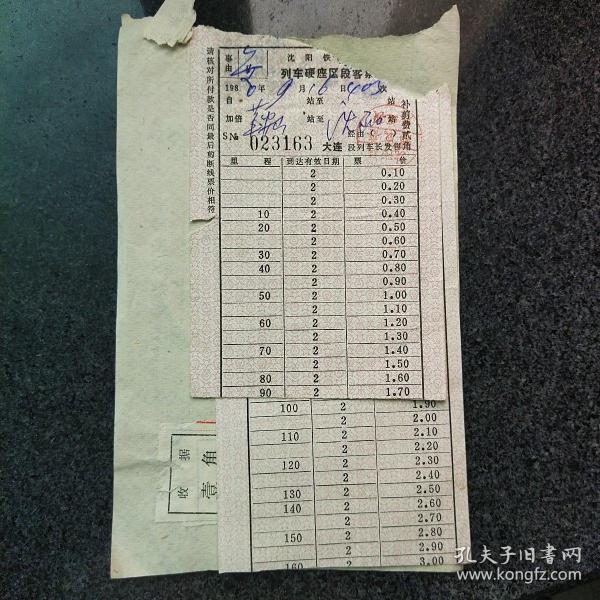 请核对所付款是否同最后剪断线票价相符
事由
沈阳铁
列车硬座区段客票
198 年9月16日403次
自 站至 站
加倍 站至 站
经由( )
SNo 023163 大连段列车长发售
补剪费贰角
里程 到达有效日期 票价
2 0.10
2 0.20
2 0.30
10 2 0.40
20 2 0.50
2 0.60
30 2 0.70
40 2 0.80
2 0.90
50 2 1.00
2 1.10
60 2 1.20
2 1.30
70 2 1.40
2 1.50
80 2 1.60
90 2 1.70
100 2 1.90
2 2.00
110 2 2.10
2 2.20
120 2 2.30
2 2.40
130 2 2.50
140 2 2.60
2 2.70
150 2 2.80
2 2.90
160 2 3.00
收据
壹角
孔夫子旧书网
www.kongfz.com